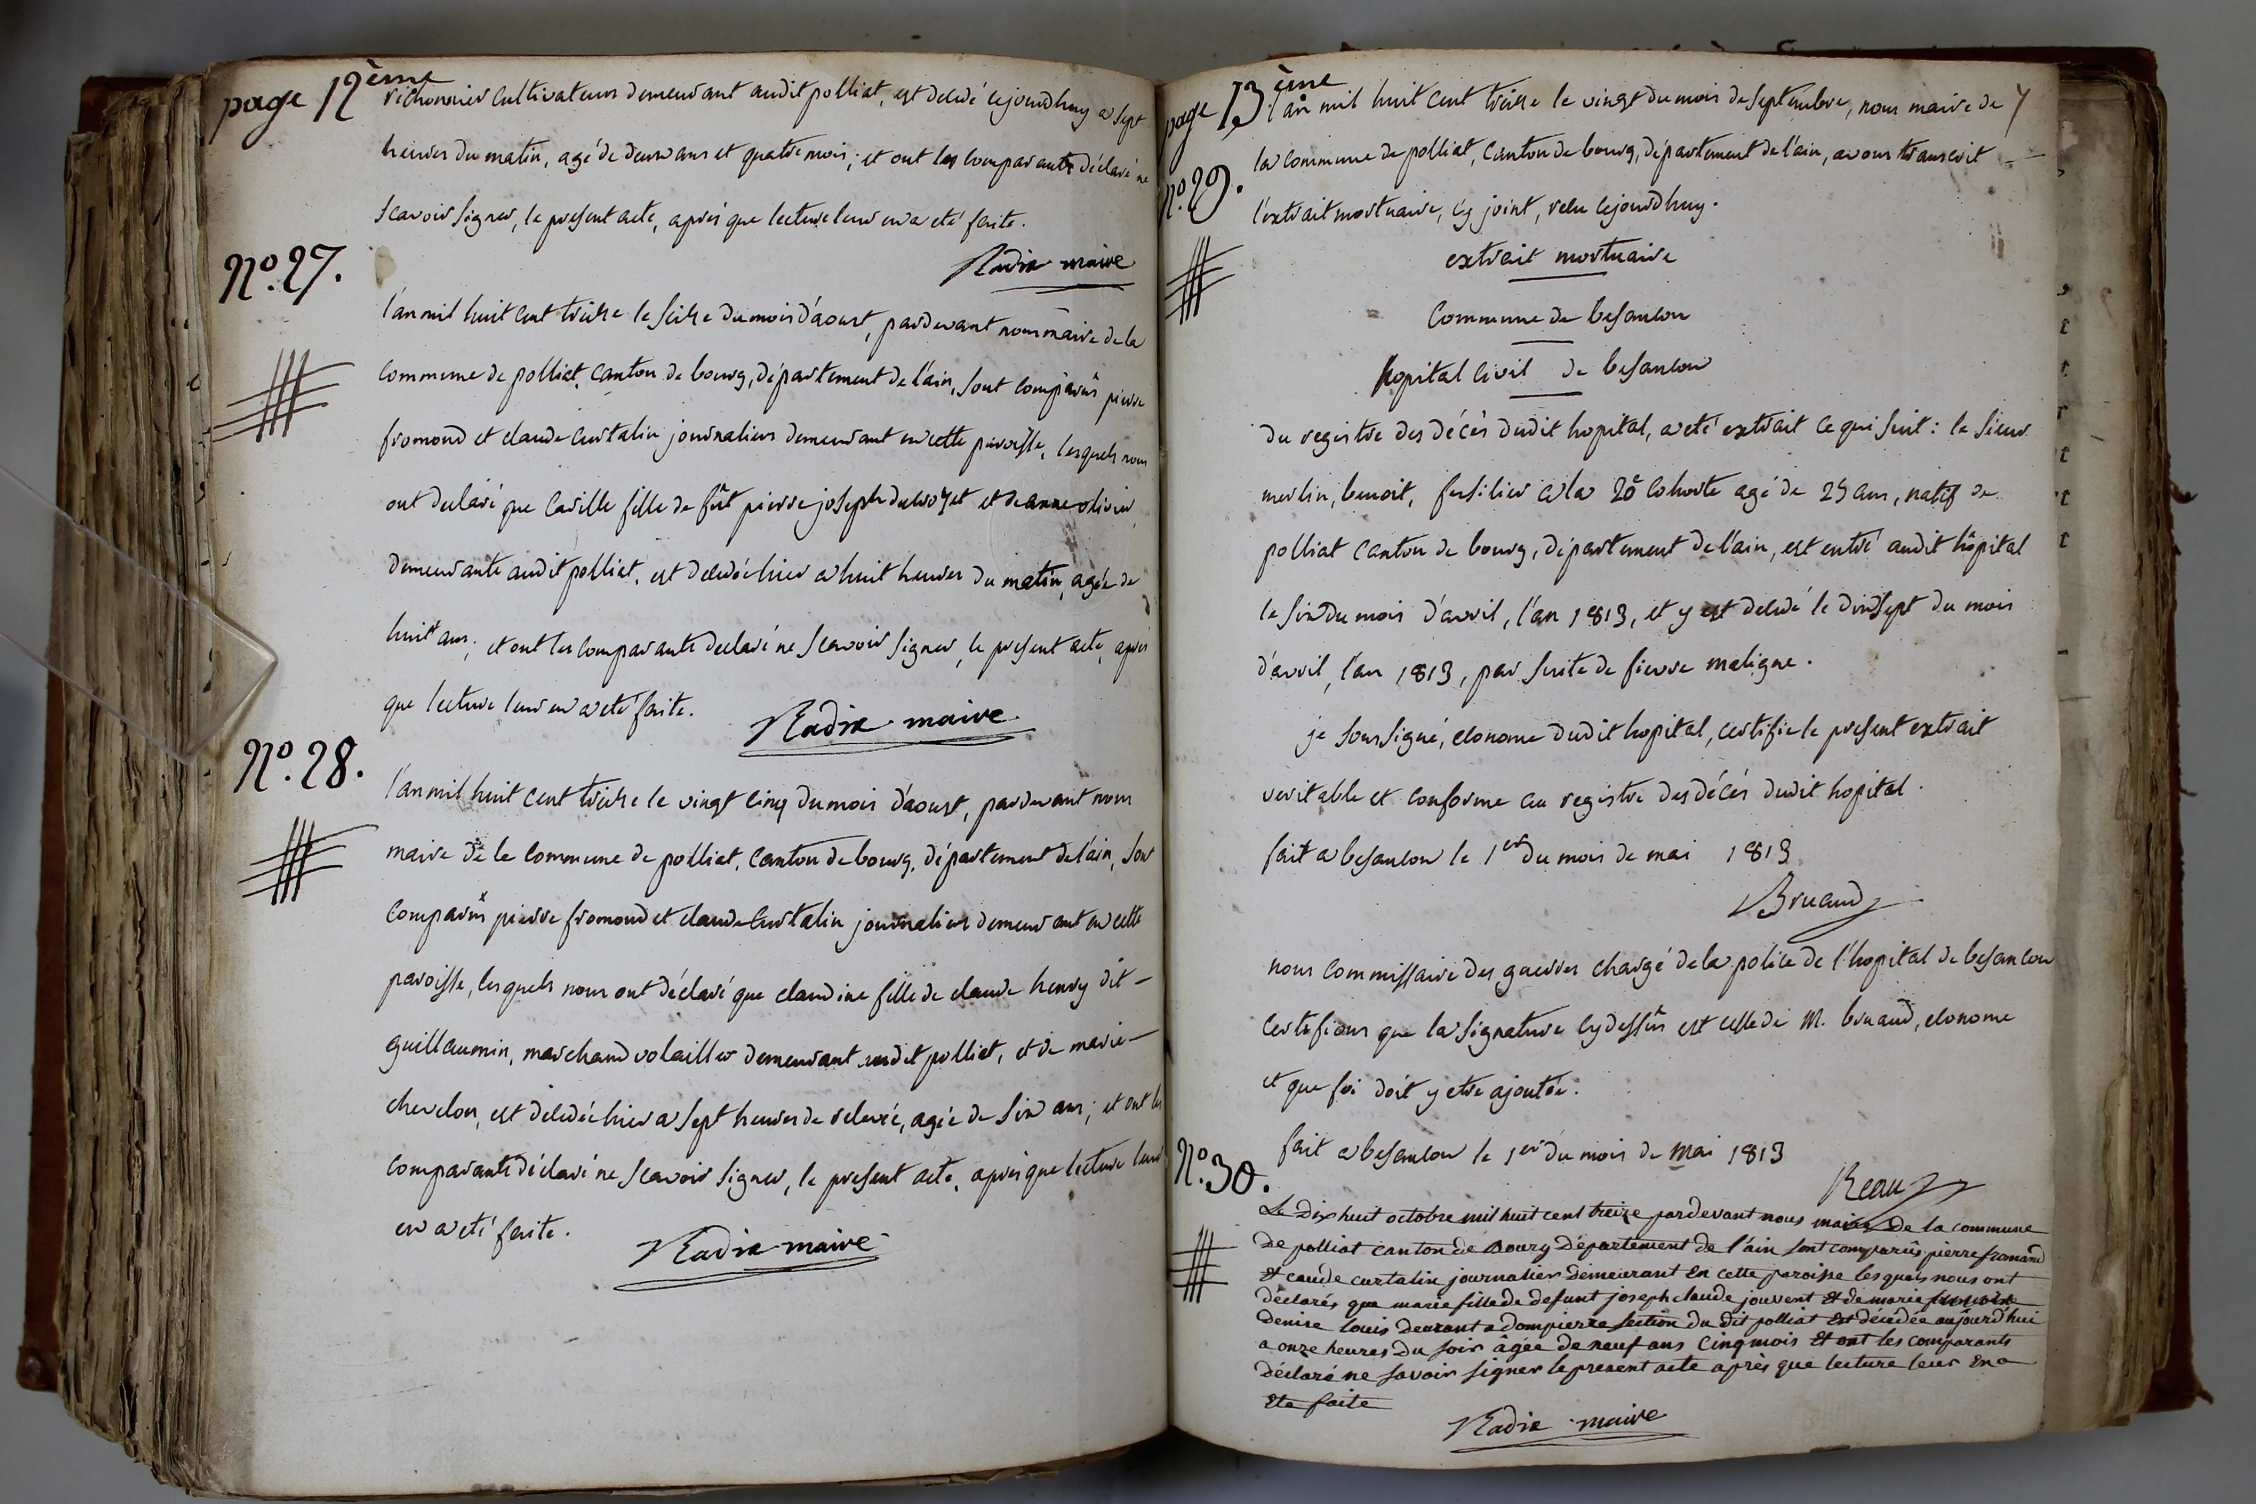 page 12ème
richonnier cultivateurs demeurant audit polliat, est décédé cejourdhuy a sept
heures du matin, agé de deux ans et quatre mois; et ont les comparants déclaré ne
scavoir signer, le present acte, après que lecture leur en a eté faite.
Nadin maire
No. 27.
l'an mil huit cent treize le seize du mois d'aoust, pardevant nous maire de la
commune de polliat, canton de bourg, département de l'ain, sont comparus pierre
fromond et claude curtalin journaliers demeurant en cette paroisse, lesquels nous
ont declaré que fille de fût pierre joseph et de anne olivier,
demeurante audit polliat, est decedée hier a huit heures du matin, agée de
huit ans; et ont les comparants declaré ne scavoir signer, le present acte, après
que lecture leur en a eté faite.
Nadin maire
No. 28.
l'an mil huit cent treize le vingt cinq du mois d'aoust, pardevant nous
maire de la commune de polliat, canton de bourg, département de l'ain, sont
comparus pierre fromond et claude curtalin journaliers demeurant en cette
paroisse, lesquels nous ont déclaré que claudine fille de claude henry dit
guillaumin, marchand volailler demeurant audit polliat, et de marie
chevelon, est decedée hier a sept heures de relevée, agée de six ans; et ont les
comparants déclaré ne scavoir signer, le present acte, après que lecture leur
en a eté faite.
Nadin maire
page 13ème
No. 29.
l'an mil huit cent treize le vingt du mois de septembre, nous maire de
la commune de polliat, canton de bourg, département de l'ain, avons transcrit
l'extrait mortuaire, cy joint, relu cejourdhuy.
extrait mortuaire
commune de besancon
hopital civil de besancon
du registre des décès dudit hopital, a eté extrait ce qui suit: le sieur
merlin, benoit, fusilier a la cohorte agé de ans, natif de
polliat canton de bourg, département de l'ain, est entré audit hôpital
le six du mois d'avril, l'an 1813, et y est decedé le dixsept du mois
d'avril, l'an 1813, par suite de fievre maligne.
je soussigné, econome dudit hopital, certifie le present extrait
veritable et conforme au registre des décès dudit hopital.
fait a besancon le 1er du mois de mai 1813
Bruand
nous commissaire des guerres chargé de la police de l'hopital de besancon
certifions que la signature cydessus est celle de M. bruand, econome
et que foi doit y etre ajoutée.
fait a besancon le 1er du mois de mai 1813
Reau
No. 30.
Le Dix huit octobre mil huit cent treize pardevant nous maire de la commune
de polliat canton de Bourg département de l'ain sont comparûs pierre fromand
et caude curtalin journalier demeurant en cette paroisse lesquels nous ont
déclarés que marie fille de defunt joseph claude jouvent et de marie
denise louis deurant a dompierre section du dit polliat est décédée aujourd'hui
a onze heures du soir âgée de neuf ans cinq mois et ont les comparants
déclaré ne savoir signer le present acte après que lecture leur en a
ete faite
Nadin maire